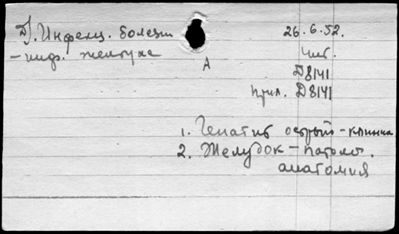 Д). Инфекц. болезни
- инф. желтуха
А
26.6.52.
Чит.
Д8141
прил. Д8141
1. Гепатит острый - клиника
2. Желудок - патолог.
анатомия